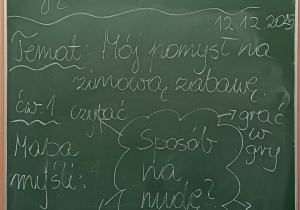 12.12.2025
Temat: Mój pomysł na
zimową zabawę.
ćw.1 czytać
grać
w
gry
Mapa
myśli:
Sposób
na
nudę?